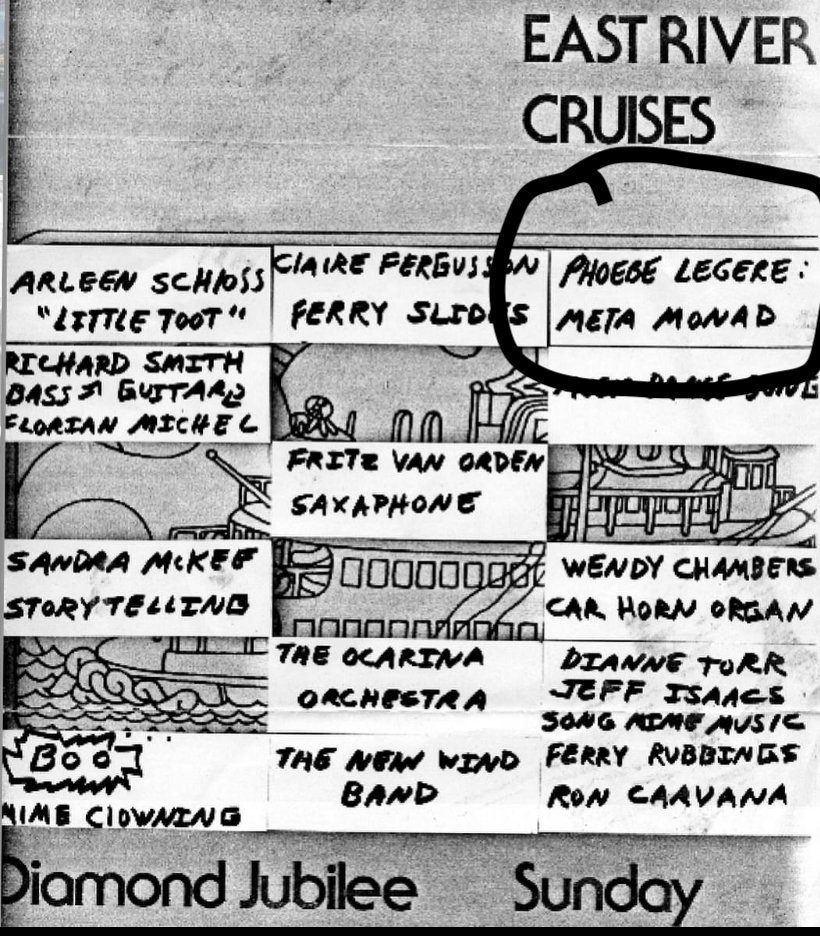 EAST RIVER
CRUISES
ARLEEN SCHLOSS
"LITTLE TOOT"
CLAIRE FERGUSSON
FERRY SLIDES
PHOEBE LEGERE:
META MONAD
RICHARD SMITH
BASS GUITAR
FLORIAN MICHEL
DANCE SONG
FRITZ VAN ORDEN
SAXAPHONE
SANDRA McKEE
STORYTELLING
WENDY CHAMBERS
CAR HORN ORGAN
THE OCARINA
ORCHESTRA
DIANNE TORR
JEFF ISAACS
SONG MIME MUSIC
BOO
MIME CLOWNING
THE NEW WIND
BAND
FERRY RUBBINGS
RON CAAVANA
Diamond Jubilee
Sunday